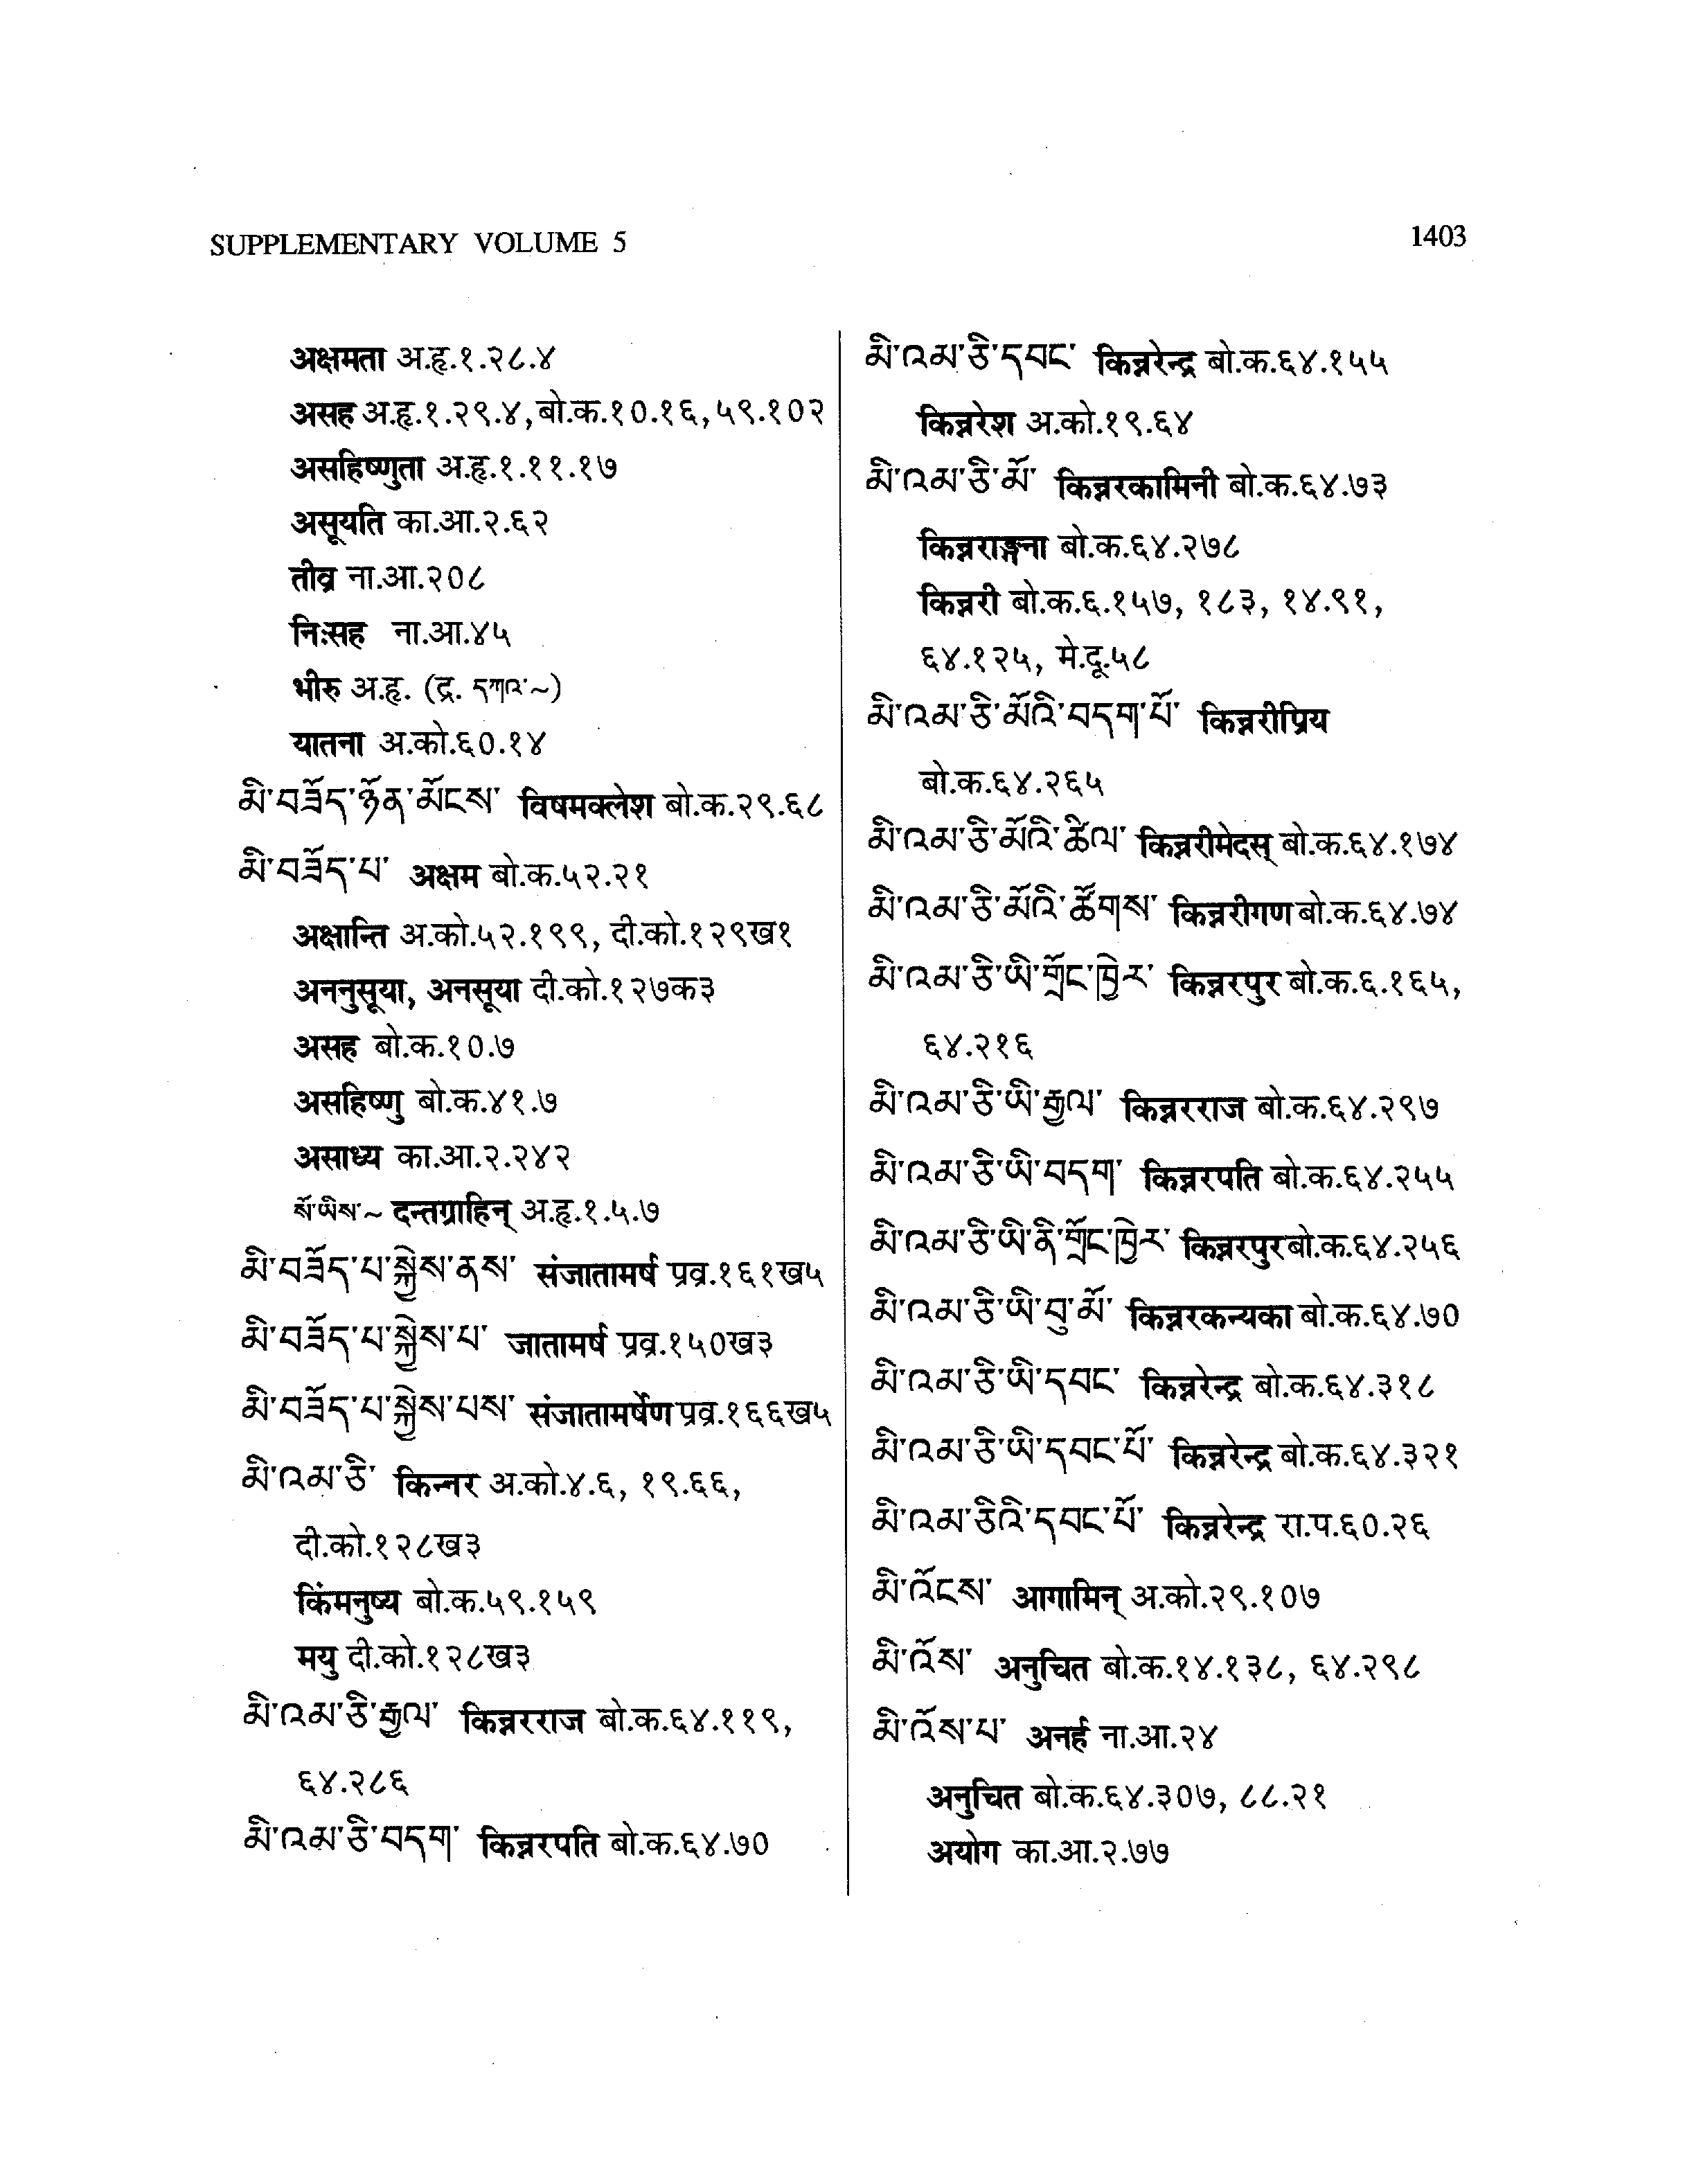 SUPPLEMENTARY VOLUME 5
1403
अक्षमता अ.हृ.१.२८.४
असह अ.हृ.१.२९.४, बो.क.१०.१६, ५९.१०२
असहिष्णुता अ.हृ.१.११.१७
असूयति का.आ.२.६२
तीव्र ना.आ.२०८
निःसह ना.आ.४५
भीरु अ.हृ. (द्र. དཀའ་~)
यातना अ.को.६०.१४
མི་བཟོད་ཉོན་མོངས་ विषमक्लेश बो.क.२९.६८
མི་བཟོད་པ་ अक्षम बो.क.५२.२१
अक्षान्ति अ.को.५२.१९९, दी.को.१२९ख१
अननुसूया, अनसूया दी.को.१२७क३
असह बो.क.१०.७
असहिष्णु बो.क.४१.७
असाध्य का.आ.२.२४२
སོ་ཡིས་~ दन्तग्राहिन् अ.हृ.१.५.७
མི་བཟོད་པ་སྐྱེས་ནས་ संजातामर्ष प्रव्र.१६१ख५
མི་བཟོད་པ་སྐྱེས་པ་ जातामर्ष प्रव्र.१५०ख३
མི་བཟོད་པ་སྐྱེས་པས་ संजातामर्षेण प्रव्र.१६६ख५
མི་འམ་ཅི་ किन्नर अ.को.४.६, १९.६६,
दी.को.१२८ख३
किंमनुष्य बो.क.५९.१५९
मयु दी.को.१२८ख३
མི་འམ་ཅི་རྒྱལ་ किन्नरराज बो.क.६४.११९,
६४.२८६
མི་འམ་ཅི་བདག་ किन्नरपति बो.क.६४.७०
མི་འམ་ཅི་དབང་ किन्नरेन्द्र बो.क.६४.१५५
किन्नरेश अ.को.१९.६४
མི་འམ་ཅི་མོ་ किन्नरकामिनी बो.क.६४.७३
किन्नराङ्गना बो.क.६४.२७८
किन्नरी बो.क.६.१५७, १८३, १४.९१,
६४.१२५, मे.दू.५८
མི་འམ་ཅི་མོའི་བདག་པོ་ किन्नरीप्रिय
बो.क.६४.२६५
མི་འམ་ཅི་མོའི་ཚིལ་ किन्नरीमेदस् बो.क.६४.१७४
མི་འམ་ཅི་མོའི་ཚོགས་ किन्नरीगण बो.क.६४.७४
མི་འམ་ཅི་ཡི་གྲོང་ཁྱེར་ किन्नरपुर बो.क.६.१६५,
६४.२१६
མི་འམ་ཅི་ཡི་རྒྱལ་ किन्नरराज बो.क.६४.२९७
མི་འམ་ཅི་ཡི་བདག་ किन्नरपति बो.क.६४.२५५
མི་འམ་ཅི་ཡི་ནི་གྲོང་ཁྱེར་ किन्नरपुर बो.क.६४.२५६
མི་འམ་ཅི་ཡི་བུ་མོ་ किन्नरकन्यका बो.क.६४.७०
མི་འམ་ཅི་ཡི་དབང་ किन्नरेन्द्र बो.क.६४.३१८
མི་འམ་ཅི་ཡི་དབང་པོ་ किन्नरेन्द्र बो.क.६४.३२१
མི་འམ་ཅིའི་དབང་པོ་ किन्नरेन्द्र रा.प.६०.२६
མི་འོངས་ आगामिन् अ.को.२९.१०७
མི་འོས་ अनुचित बो.क.१४.१३८, ६४.२९८
མི་འོས་པ་ अनर्ह ना.आ.२४
अनुचित बो.क.६४.३०७, ८८.२१
अयोग का.आ.२.७७